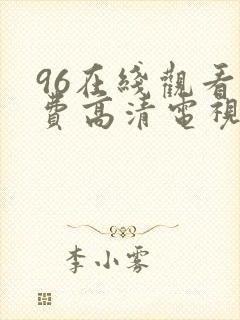 96在綫觀看
費高清電視
李小雾